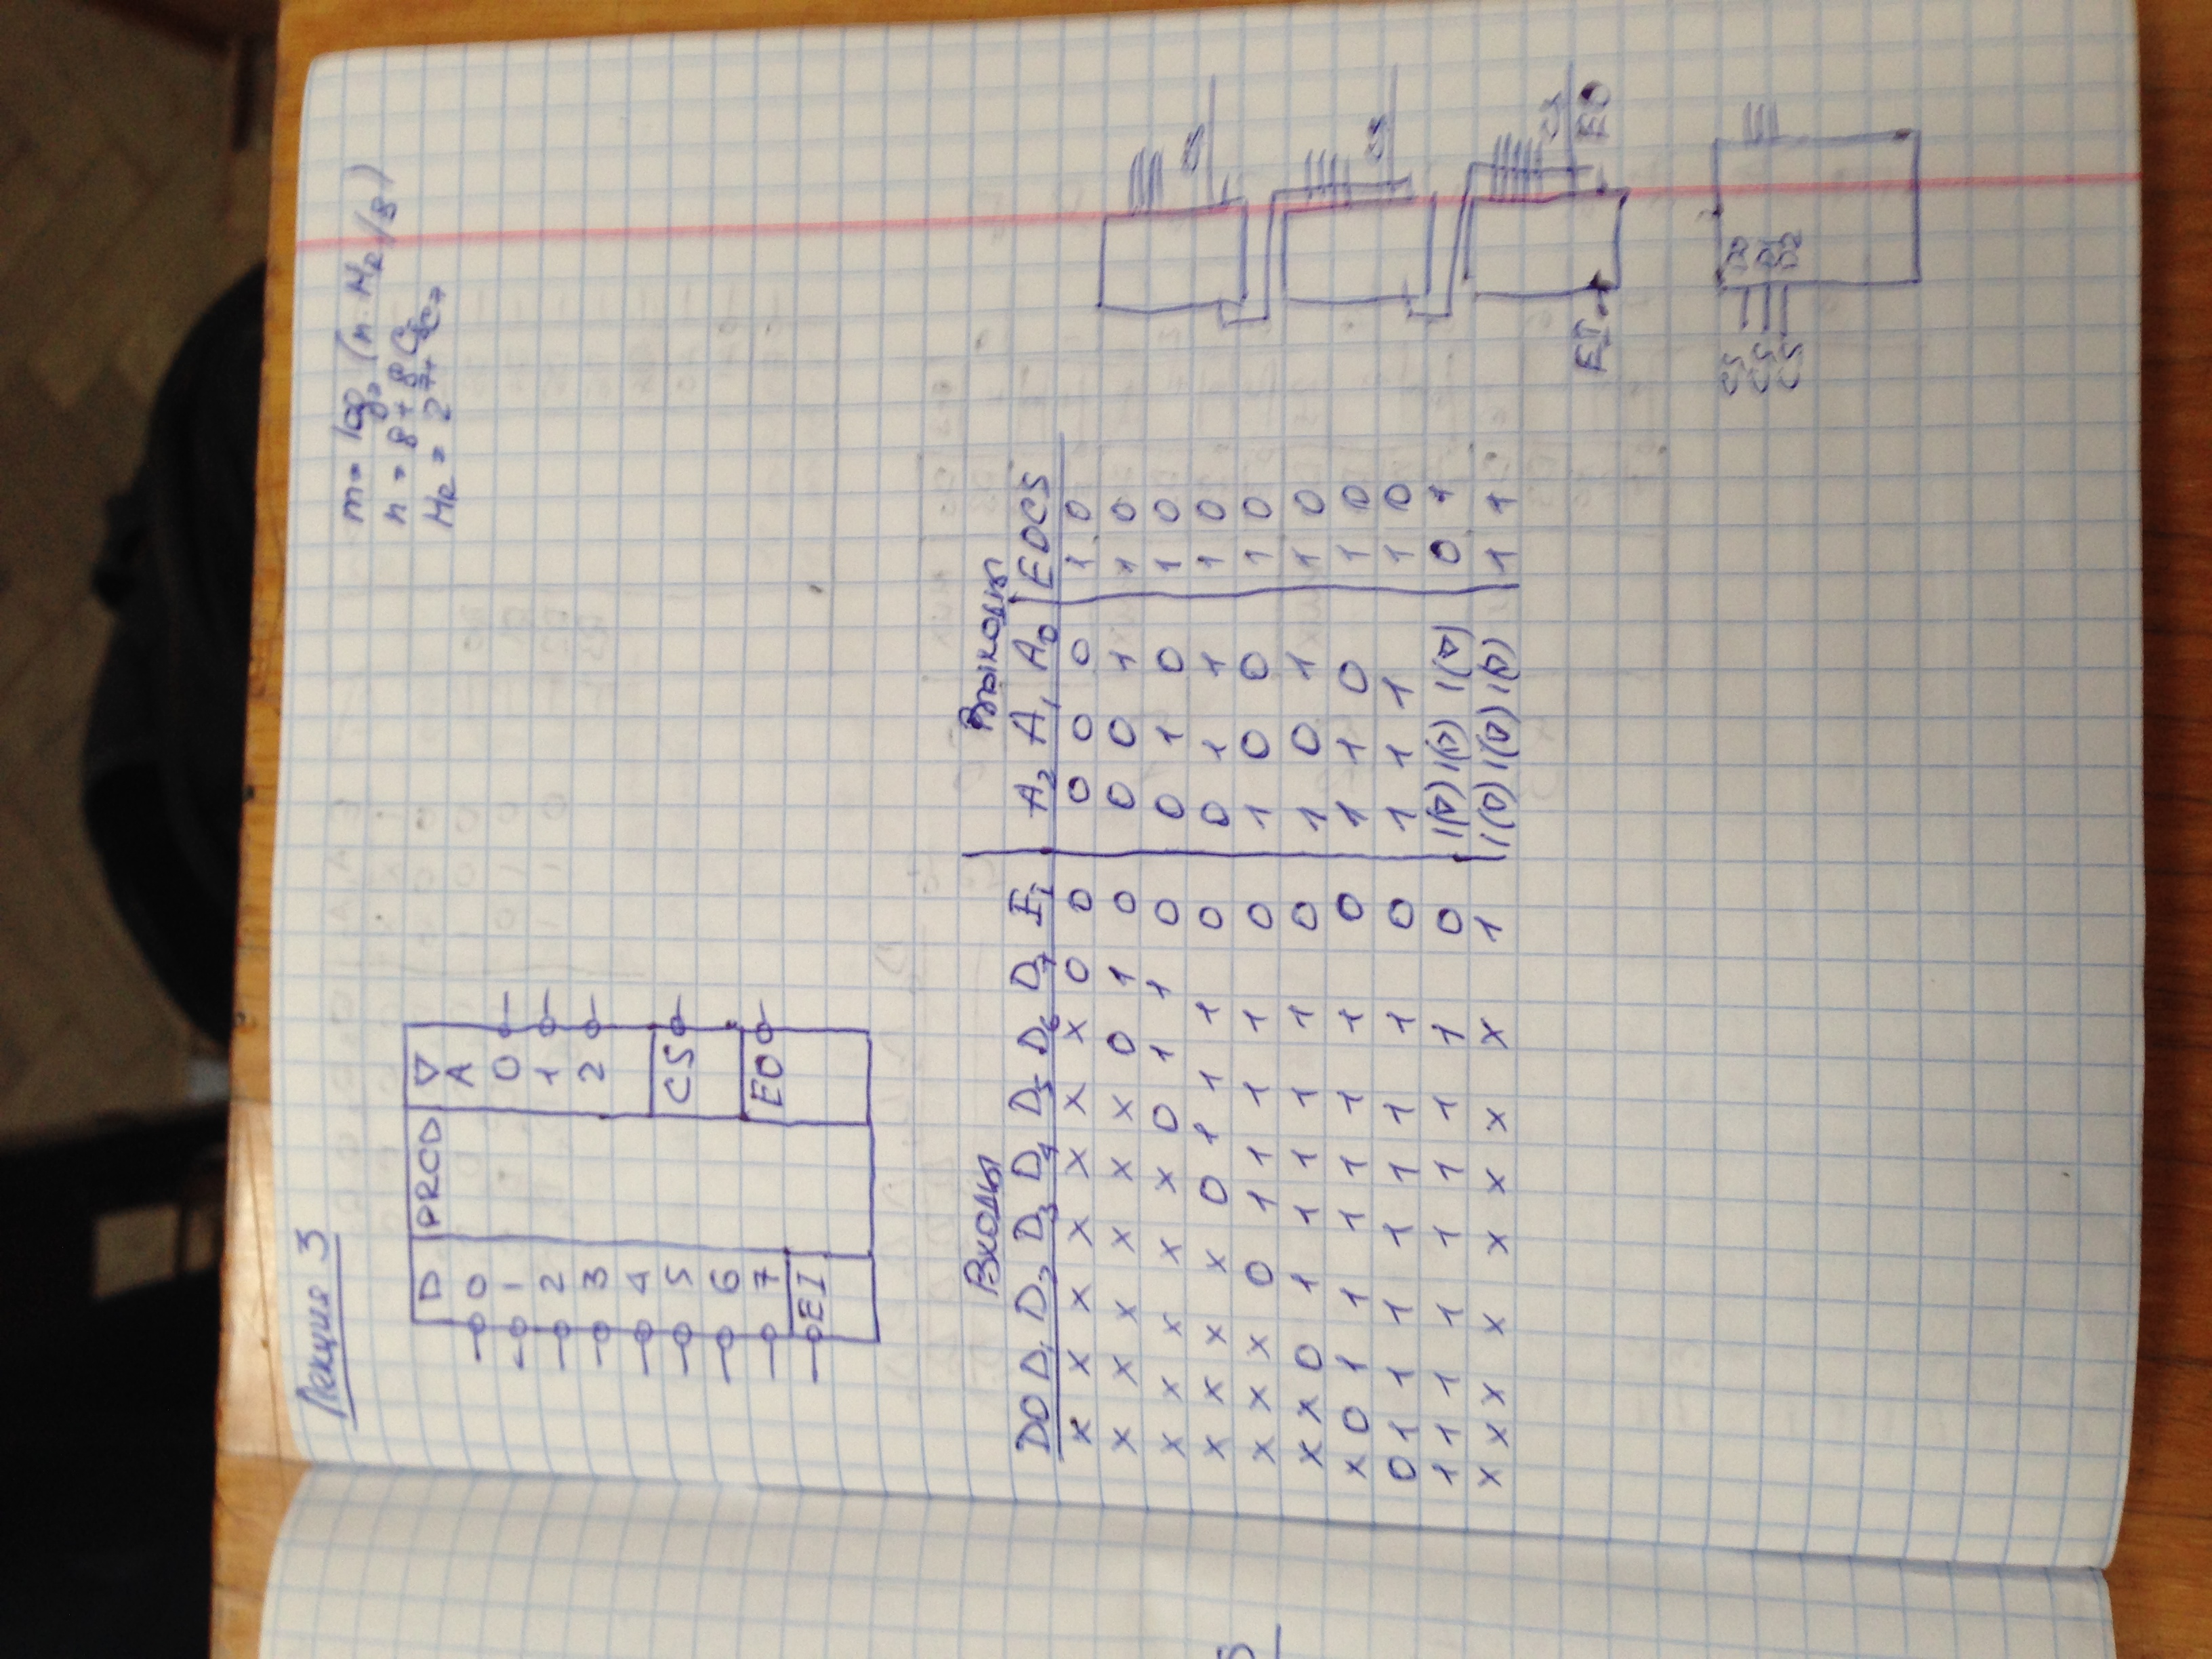 Лекция 3
m = log₂ (n
n = 8 +
D PRCD ▽
A
0
0
1
1
2
2
3
4
5
6
7
CS
EO
EI
Входы Выходы
D0 D₁ D₂ D₃ D₄ D₅ D₆ D₇ EI A₂ A₁ A₀ EO CS
x x x x x x x 0 0 0 0 0 1 0
x x x x x x 0 1 0 0 0 1 1 0
x x x x x 0 1 1 0 0 1 0 1 0
x x x x 0 1 1 1 0 0 1 1 1 0
x x x 0 1 1 1 1 0 1 0 0 1 0
x x 0 1 1 1 1 1 0 1 0 1 1 0
x 0 1 1 1 1 1 1 0 1 1 0 1 0
0 1 1 1 1 1 1 1 0 1 1 1 1 0
1 1 1 1 1 1 1 1 0 1(▽) 1(▽) 1(▽) 0 1
x x x x x x x x 1 1(▽) 1(▽) 1(▽) 1 1
EI EO
CS
CS
CS